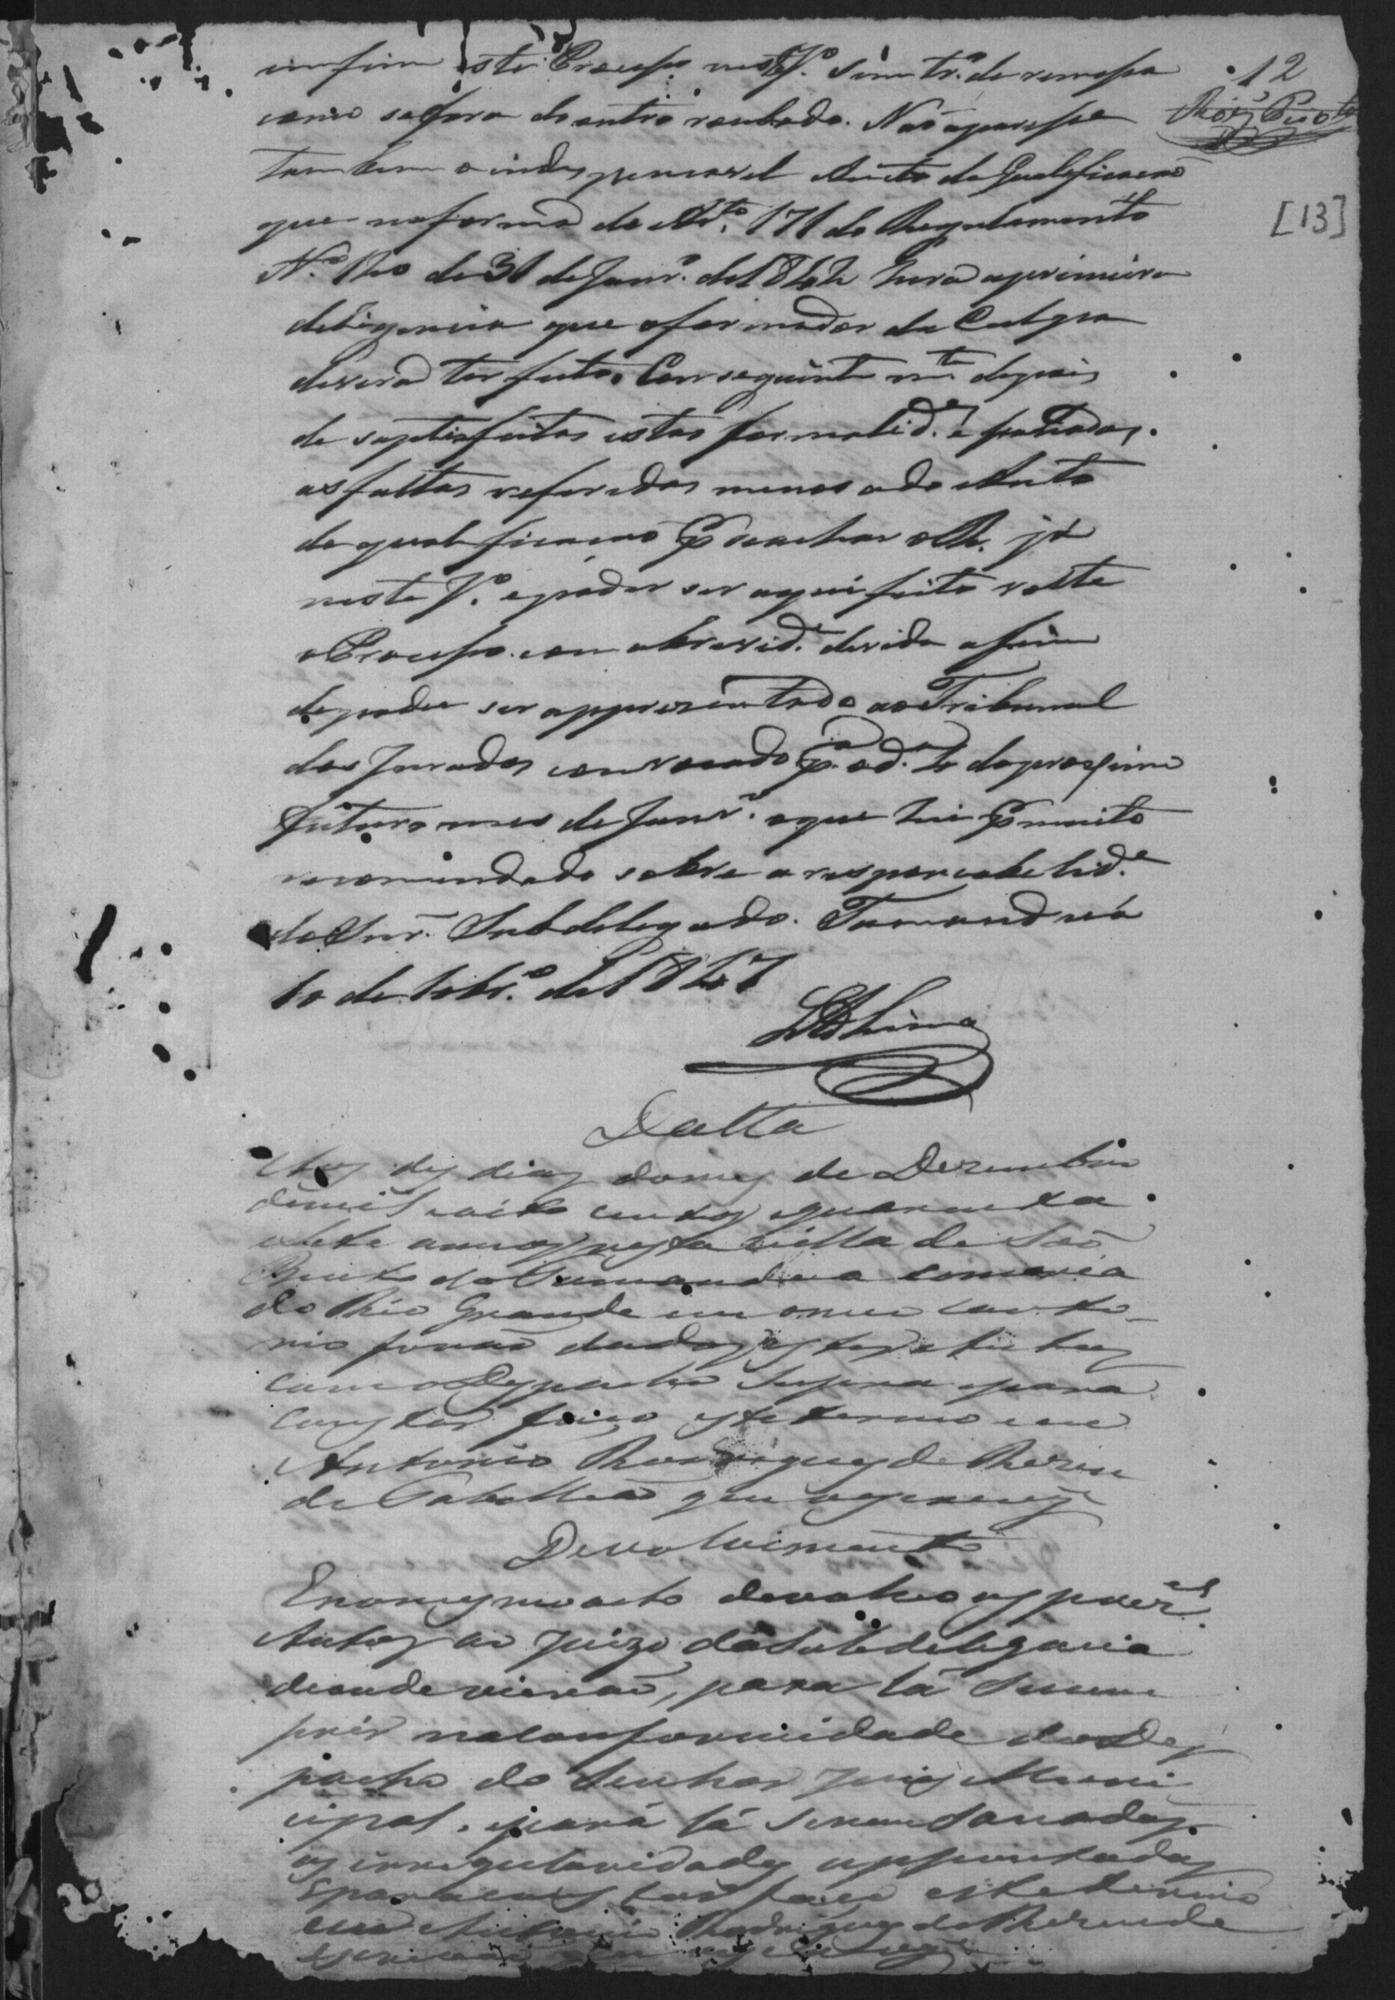 12
[13]
emfim este Processo neste J.º sem tr.º de remessa
como se fora de outro roubado. Não aparesse
tambem o indespençavel Auto de Qualeficacaõ
que na forma do Art.º 171 do Regulamento
N.º 120 de 31 de Janr.º de 1842 hera a primeira
deligencia que o formador da Culpa
devera ter feito. Conseguinte m.te depois
de sastisfeitas estas formalid.es e
as faltas referidas menos a do Auto
de qualeficacaõ p achar o R. já
neste J.º e poder ser aqui feito volte
o Processo com a brevid.e devida afim
de poder ser appresentado ao Tribunal
dos Jurados convocado p.a o d.a do proximo
futuro mes de Janr.º o que hei p muito
recomendado sobre a responcabelid.e
do Snr. Subdelegado. Tamanduá
10 de 10br.º de 1847
Lima
Datta
Aos des dias do mes de Dezembro
de mil oito centos quarenta
e sete annos nesta Villa de São
Bento do Tamandua comarca
do Rio Grande em o meu Carto-
rio foraõ dados estes autos
com o Despacho supra e para
constar faço este termo eu
Antonio Rodrigues de Rezen
de Tabelliaõ que o escrevy
Devolvimento
E no mesmo acto devolvo os prez.es
Autos ao Juizo da Subdelegacia
de onde vieraõ, para lá
prir na conformidade do Des
pacho do Senhor Juiz Muni
cipal, e para lá serem sanadas
as irregularidades appontadas
E para constar faço este termo
eu Antonio Rodrigues de Rezende